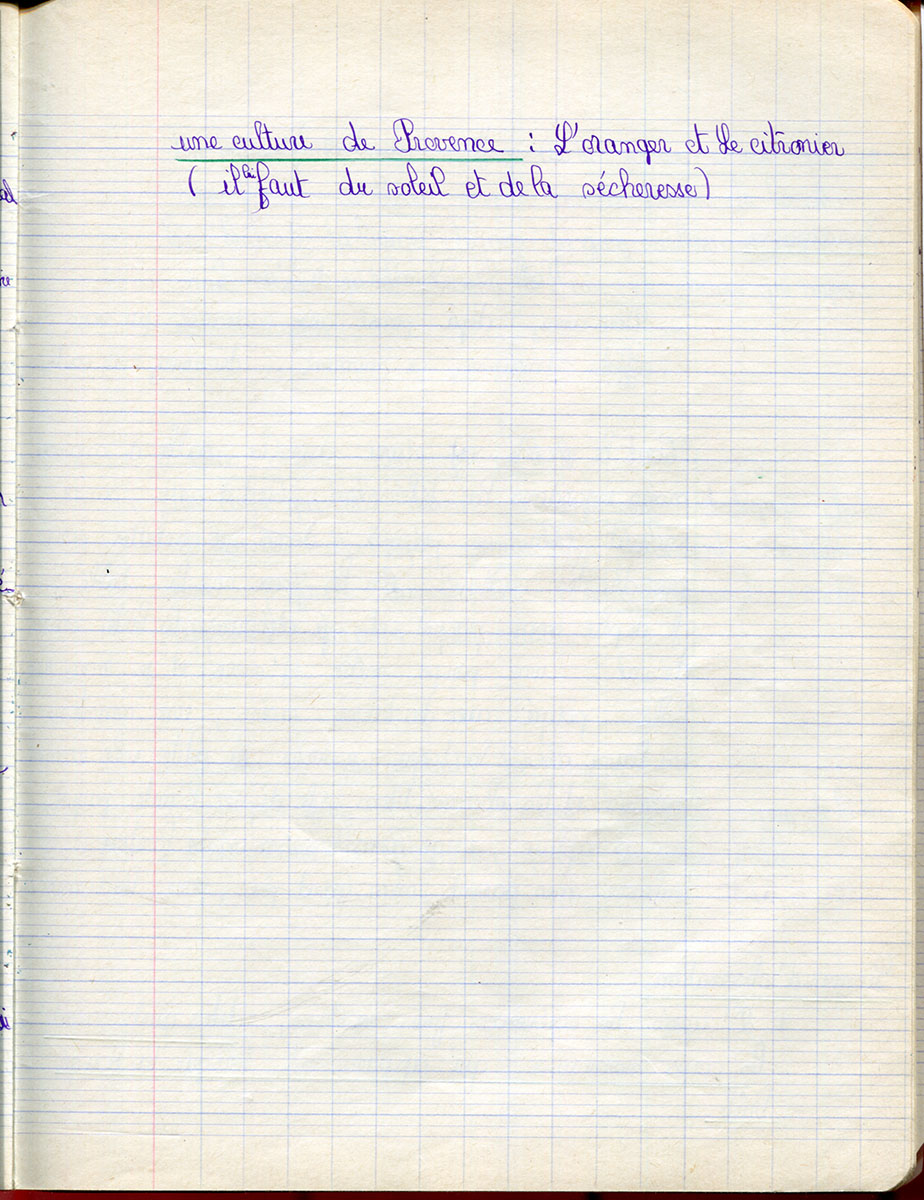 une culture de Provence : L'oranger et Le citronier
( il lui faut du soleil et de la sécheresse)